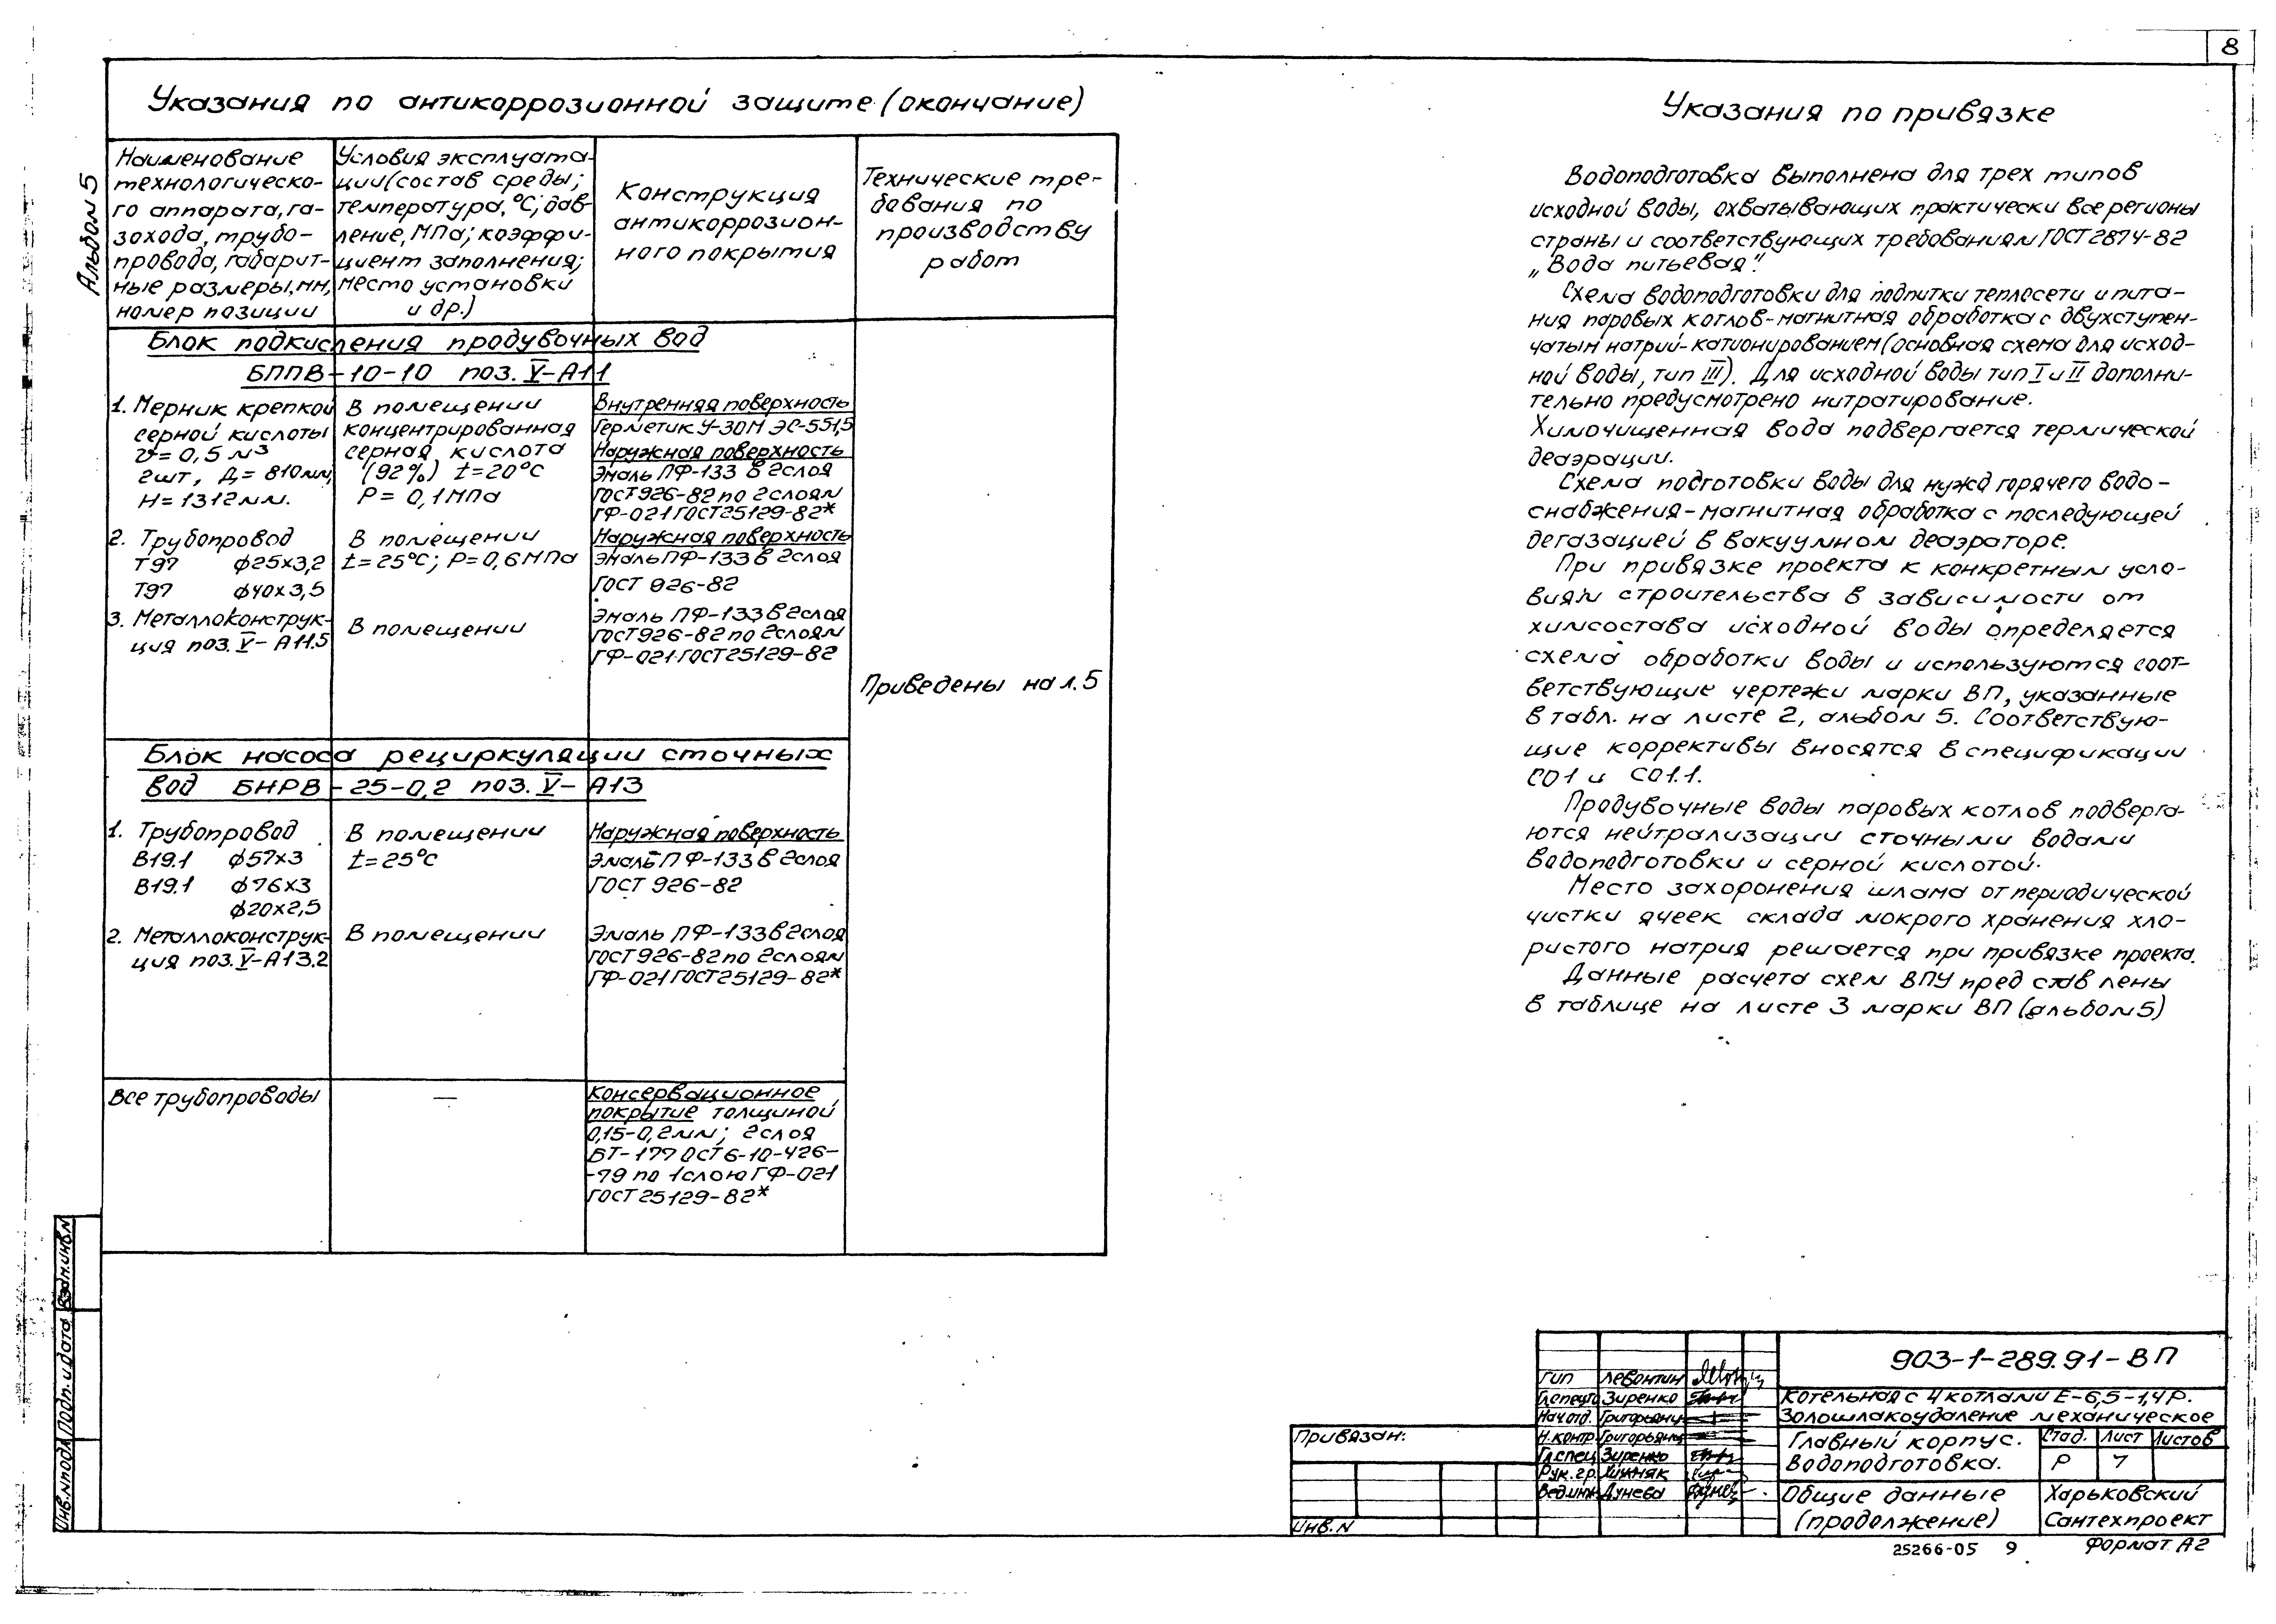 8
Альбом 5
Указания по антикоррозионной защите (окончание)
Наименование
технологическо-
го аппарата, га-
зохода, трубо-
провода, габарит-
ные размеры, мм,
номер позиции
Условия эксплуата-
ции (состав среды;
температура, °С; дав-
ление, МПа; коэффи-
циент заполнения;
место установки
и др.)
Конструкция
антикоррозион-
ного покрытия
Технические тре-
бования по
производству
работ
Блок подкисления продувочных вод
БППВ-10-10 поз. V-А11
1. Мерник крепкой
серной кислоты
V= 0,5 м³
2шт, Д= 810мм,
Н=1312мм.
В помещении
концентрированная
серная кислота
(92%) t=20°С
Р= 0,1МПа
Внутренняя поверхность
Герметик У-30М ЭС-551,5
Наружная поверхность
Эмаль ПФ-133 в 2слоя
ГОСТ 926-82 по 2слоям
ГФ-021 ГОСТ25129-82*
2. Трубопровод
Т97 ф25х3,2
Т97 ф40х3,5
В помещении
t=25°С; Р=0,6МПа
Наружная поверхность
Эмаль ПФ-133 в 2слоя
ГОСТ 926-82
3. Металлоконструк-
ция поз. V-А11.5
В помещении
Эмаль ПФ-133 в 2слоя
ГОСТ926-82 по 2слоям
ГФ-021 ГОСТ25129-82
Приведены на л.5
Блок насоса рециркуляции сточных
вод БНРВ-25-0,2 поз. V-А13
1. Трубопровод
В19.1 ф57х3
В19.1 ф76х3
ф20х2,5
В помещении
t=25°С
Наружная поверхность
Эмаль ПФ-133 в 2слоя
ГОСТ 926-82
2. Металлоконструк-
ция поз. V-А13.2
В помещении
Эмаль ПФ-133 в 2слоя
ГОСТ 926-82 по 2слоям
ГФ-021 ГОСТ25129-82*
Все трубопроводы
—
Консервационное
покрытие толщиной
0,15-0,2мм; 2слоя
БТ-177 ОСТ6-10-426-
-79 по 1слою ГФ-021
ГОСТ25129-82*
Указания по привязке
Водоподготовка выполнена для трех типов
исходной воды, охватывающих практически все регионы
страны и соответствующих требованиям ГОСТ2874-82
„Вода питьевая".
Схема водоподготовки для подпитки теплосети и пита-
ния паровых котлов-магнитная обработка с двухступен-
чатым натрий-катионированием (основная схема для исход-
ной воды, тип III). Для исходной воды тип I и II дополни-
тельно предусмотрено нитратирование.
Химочищенная вода подвергается термической
деаэрации.
Схема подготовки воды для нужд горячего водо-
снабжения-магнитная обработка с последующей
дегазацией в вакуумном деаэраторе.
При привязке проекта к конкретным усло-
виям строительства в зависимости от
химсостава исходной воды определяется
схема обработки воды и используются соот-
ветствующие чертежи марки ВП, указанные
в табл. на листе 2, альбом 5. Соответствую-
щие коррективы вносятся в спецификации
СО1 и СО1.1.
Продувочные воды паровых котлов подверга-
ются нейтрализации сточными водами
водоподготовки и серной кислотой.
Место захоронения шлама от периодической
чистки ячеек склада мокрого хранения хло-
ристого натрия решается при привязке проекта.
Данные расчета схем ВПУ представлены
в таблице на листе 3 марки ВП (альбом5)
Взам.инв.N
Подп. и дата
Инв.N подл
Привязан:
Инв.N
ГИП Левонтин
Зиренко
Нач.отд. Григорьянц
Н.контр Григорьянц
Гл.спец Зиренко
Рук.гр.
Вед.инж Дунева
903-1-289.91-ВП
Котельная с 4 котлами Е-6,5-1,4Р.
Золошлакоудаление механическое
Главный корпус.
Водоподготовка.
Стад. Лист Листов
Р 7
Общие данные
(продолжение)
Харьковский
Сантехпроект
25266-05 9
Формат А2